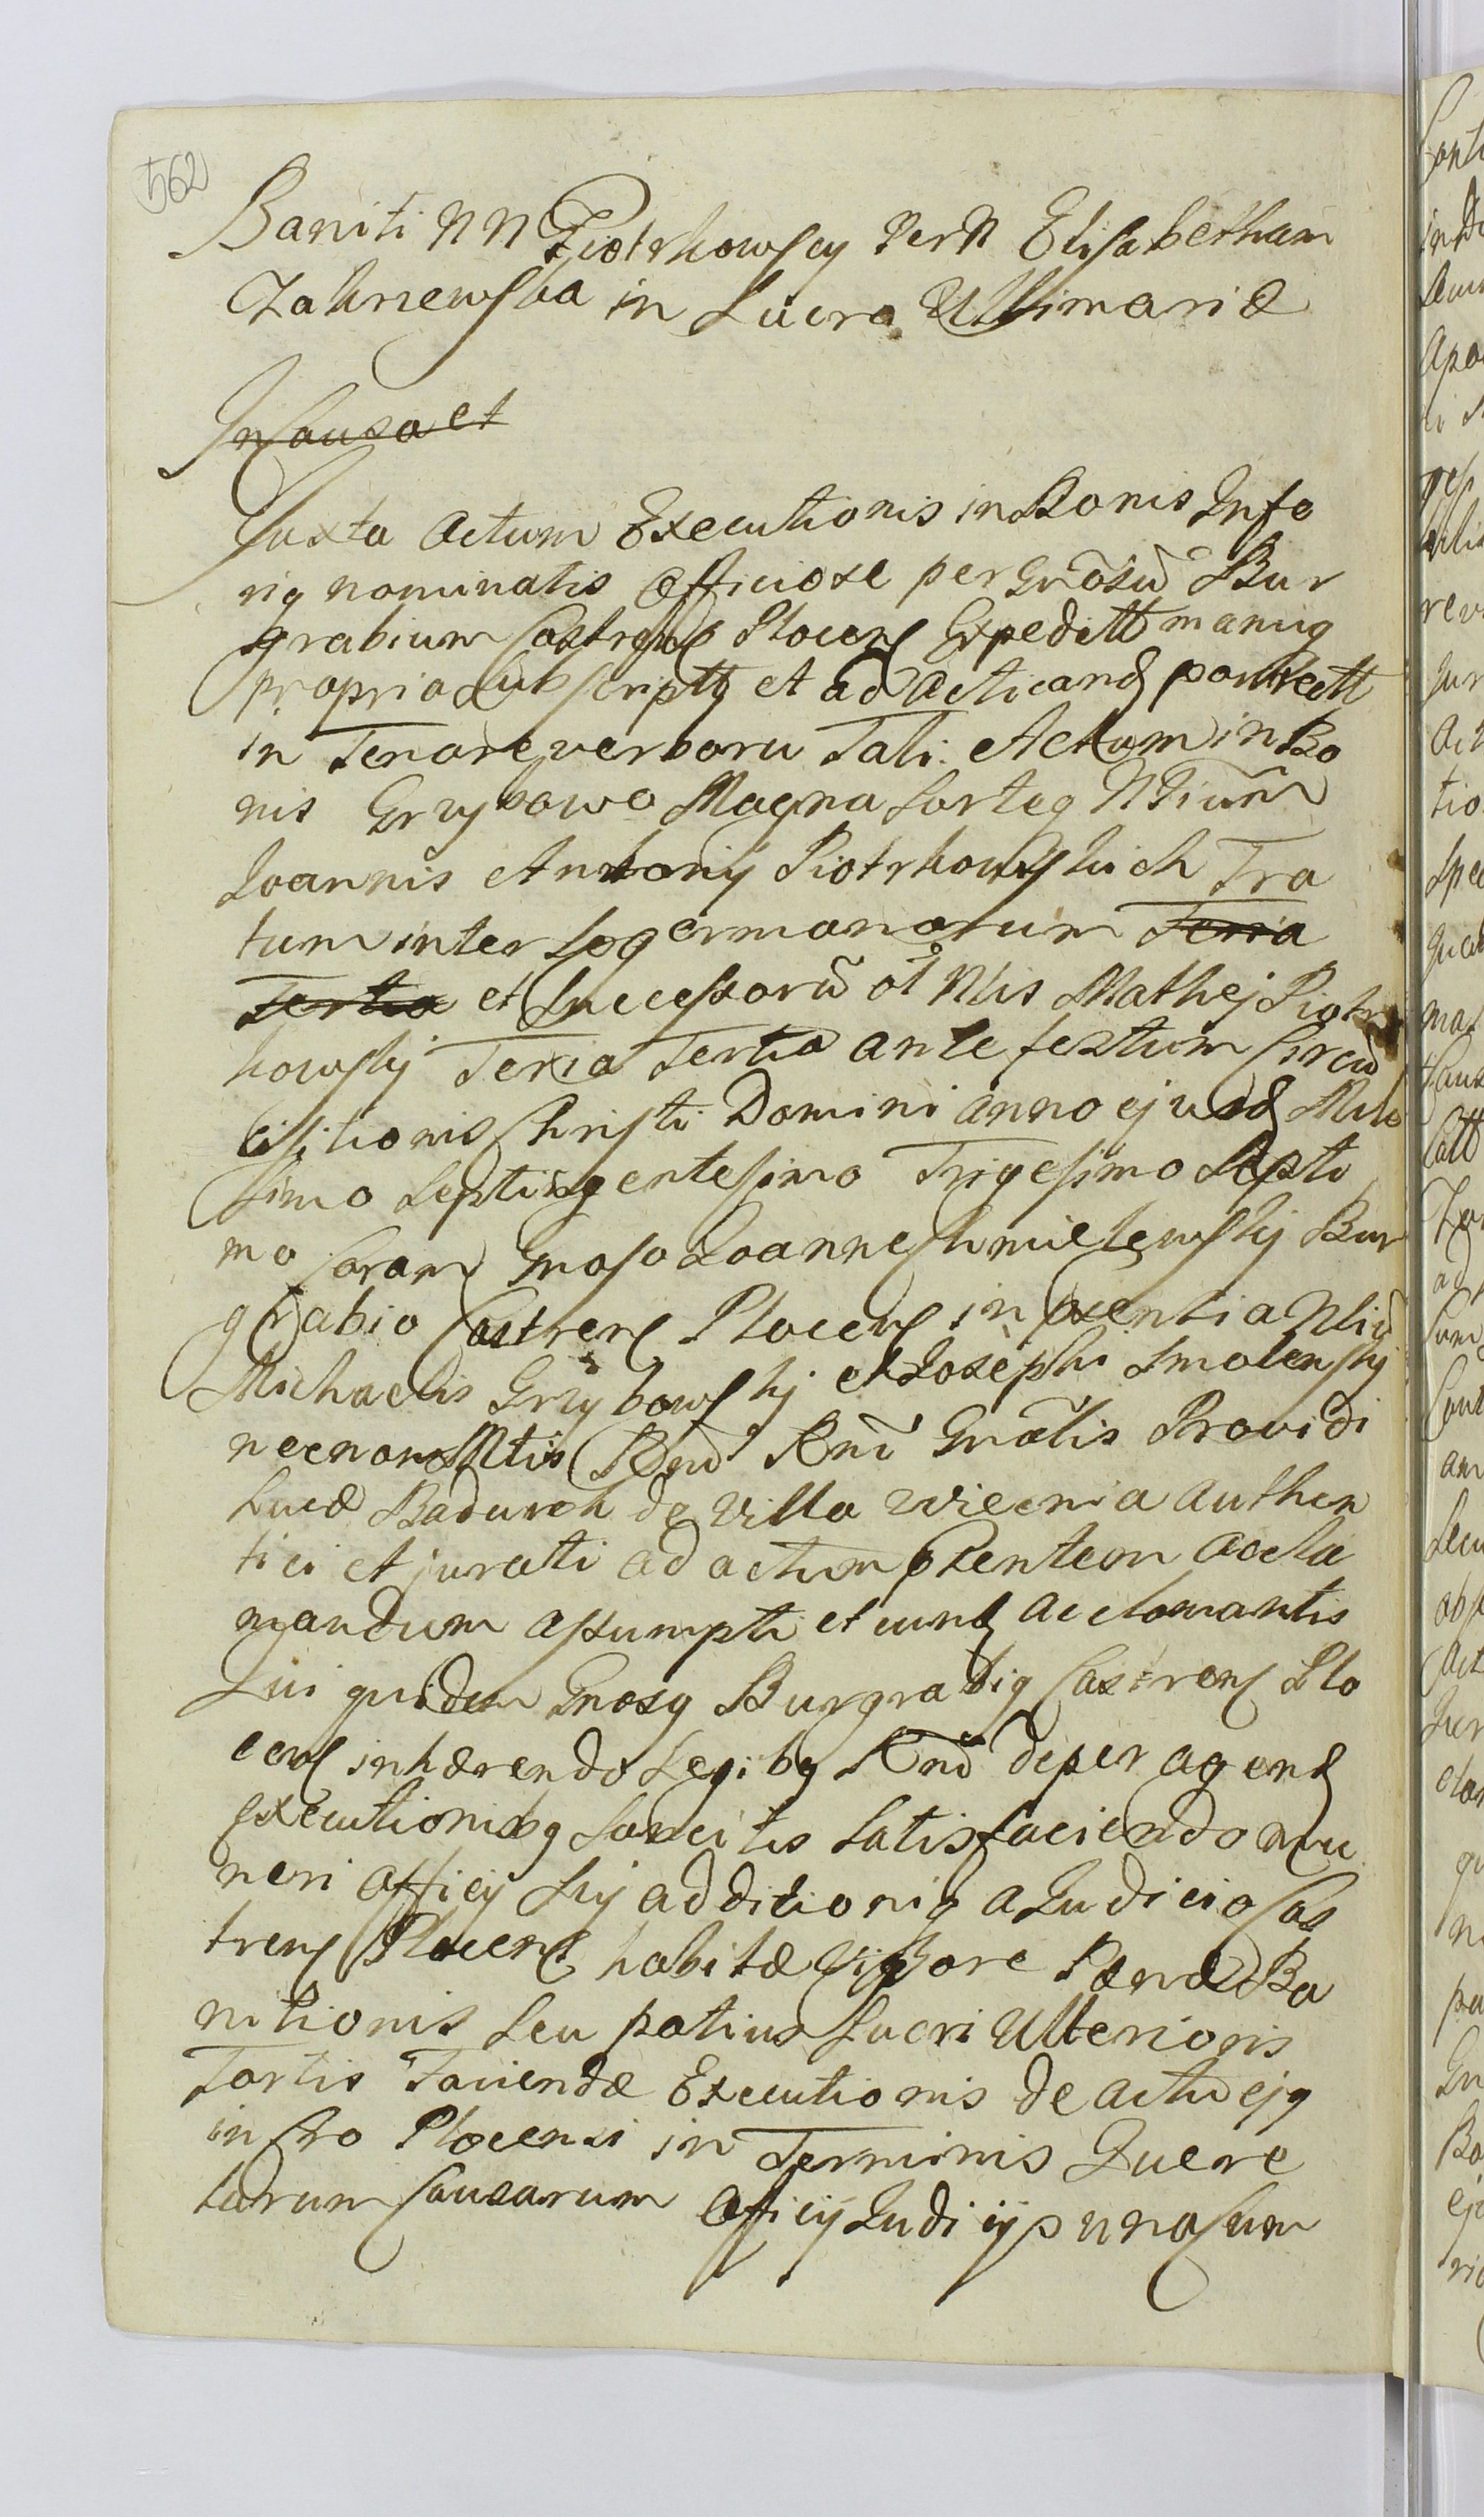 562
Baniti NN Piotrkowscy Per N Elisabetham
Zakrzewska in Lucra Ultimaria
In Causa et
Juxta Actum Executionis in Bonis Infe
rig nominatis officiose per Gnosu Bur
grabium Castren Plocen Expeditt manug
propria subscriptg et ad acticand porrectt
in Tenore verboru Tali. Actum in Bo
nis Grzybowo Magna Sorteg NNium
Joannis Antonij Piotrkowskich Fra
trum inter se germanorum Feria
Tertia et Successoru ol Nlis Mathej Piotr
kowskij Feria Tertia ante festum Circu
cisitionis Christi Domini anno ejusd Mile
simo Septingentesimo Trigesimo Septi
mo Coram Gnoso Joanne Chmielewskij Bur
grabio Castren Plocen in pxentia Nliu
Michaelis Grzybowskij et Josephi Smolenskij
necnon Mtis Rnd Rni Gnalis Providi
Lucæ Badurch de Villa Wiecnia authen
tici et jurati ad actum pxentem accla
mandum assumpti et eund acclamantis
Qui quidem Gnosg Burgrabig Castren Plo
cen inhærendo Legibg Rnd de peragend
executionibg sancitis satisfaciendo mu
neri officij sui additionig a Judicio Cas
tren Plocen habitæ vigore Pænæ Ba
nitionis seu potius Lucri Ulterioris
Fortis Faciendæ Executionis de actu ejg
in Cro Plocensi in Terminis Quere
larum Causarum Officij Judicijs una cum